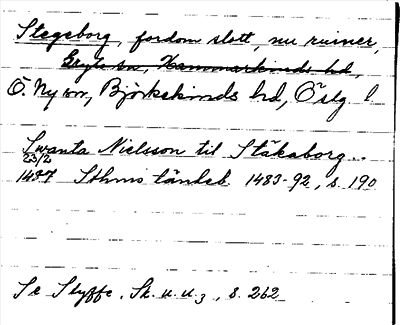 Stegeborg, fordom slott, nu ruiner,
Gryts sn, Hammarkinds hd,
Ö. Ny sn, Björkekinds hd, Ög l
Swanta Nielsson til Stäkaborg..
23/2
1487 Sthms tänkeb. 1483-92, s. 190
Se Styffe, Sk. u. u.3, s. 262